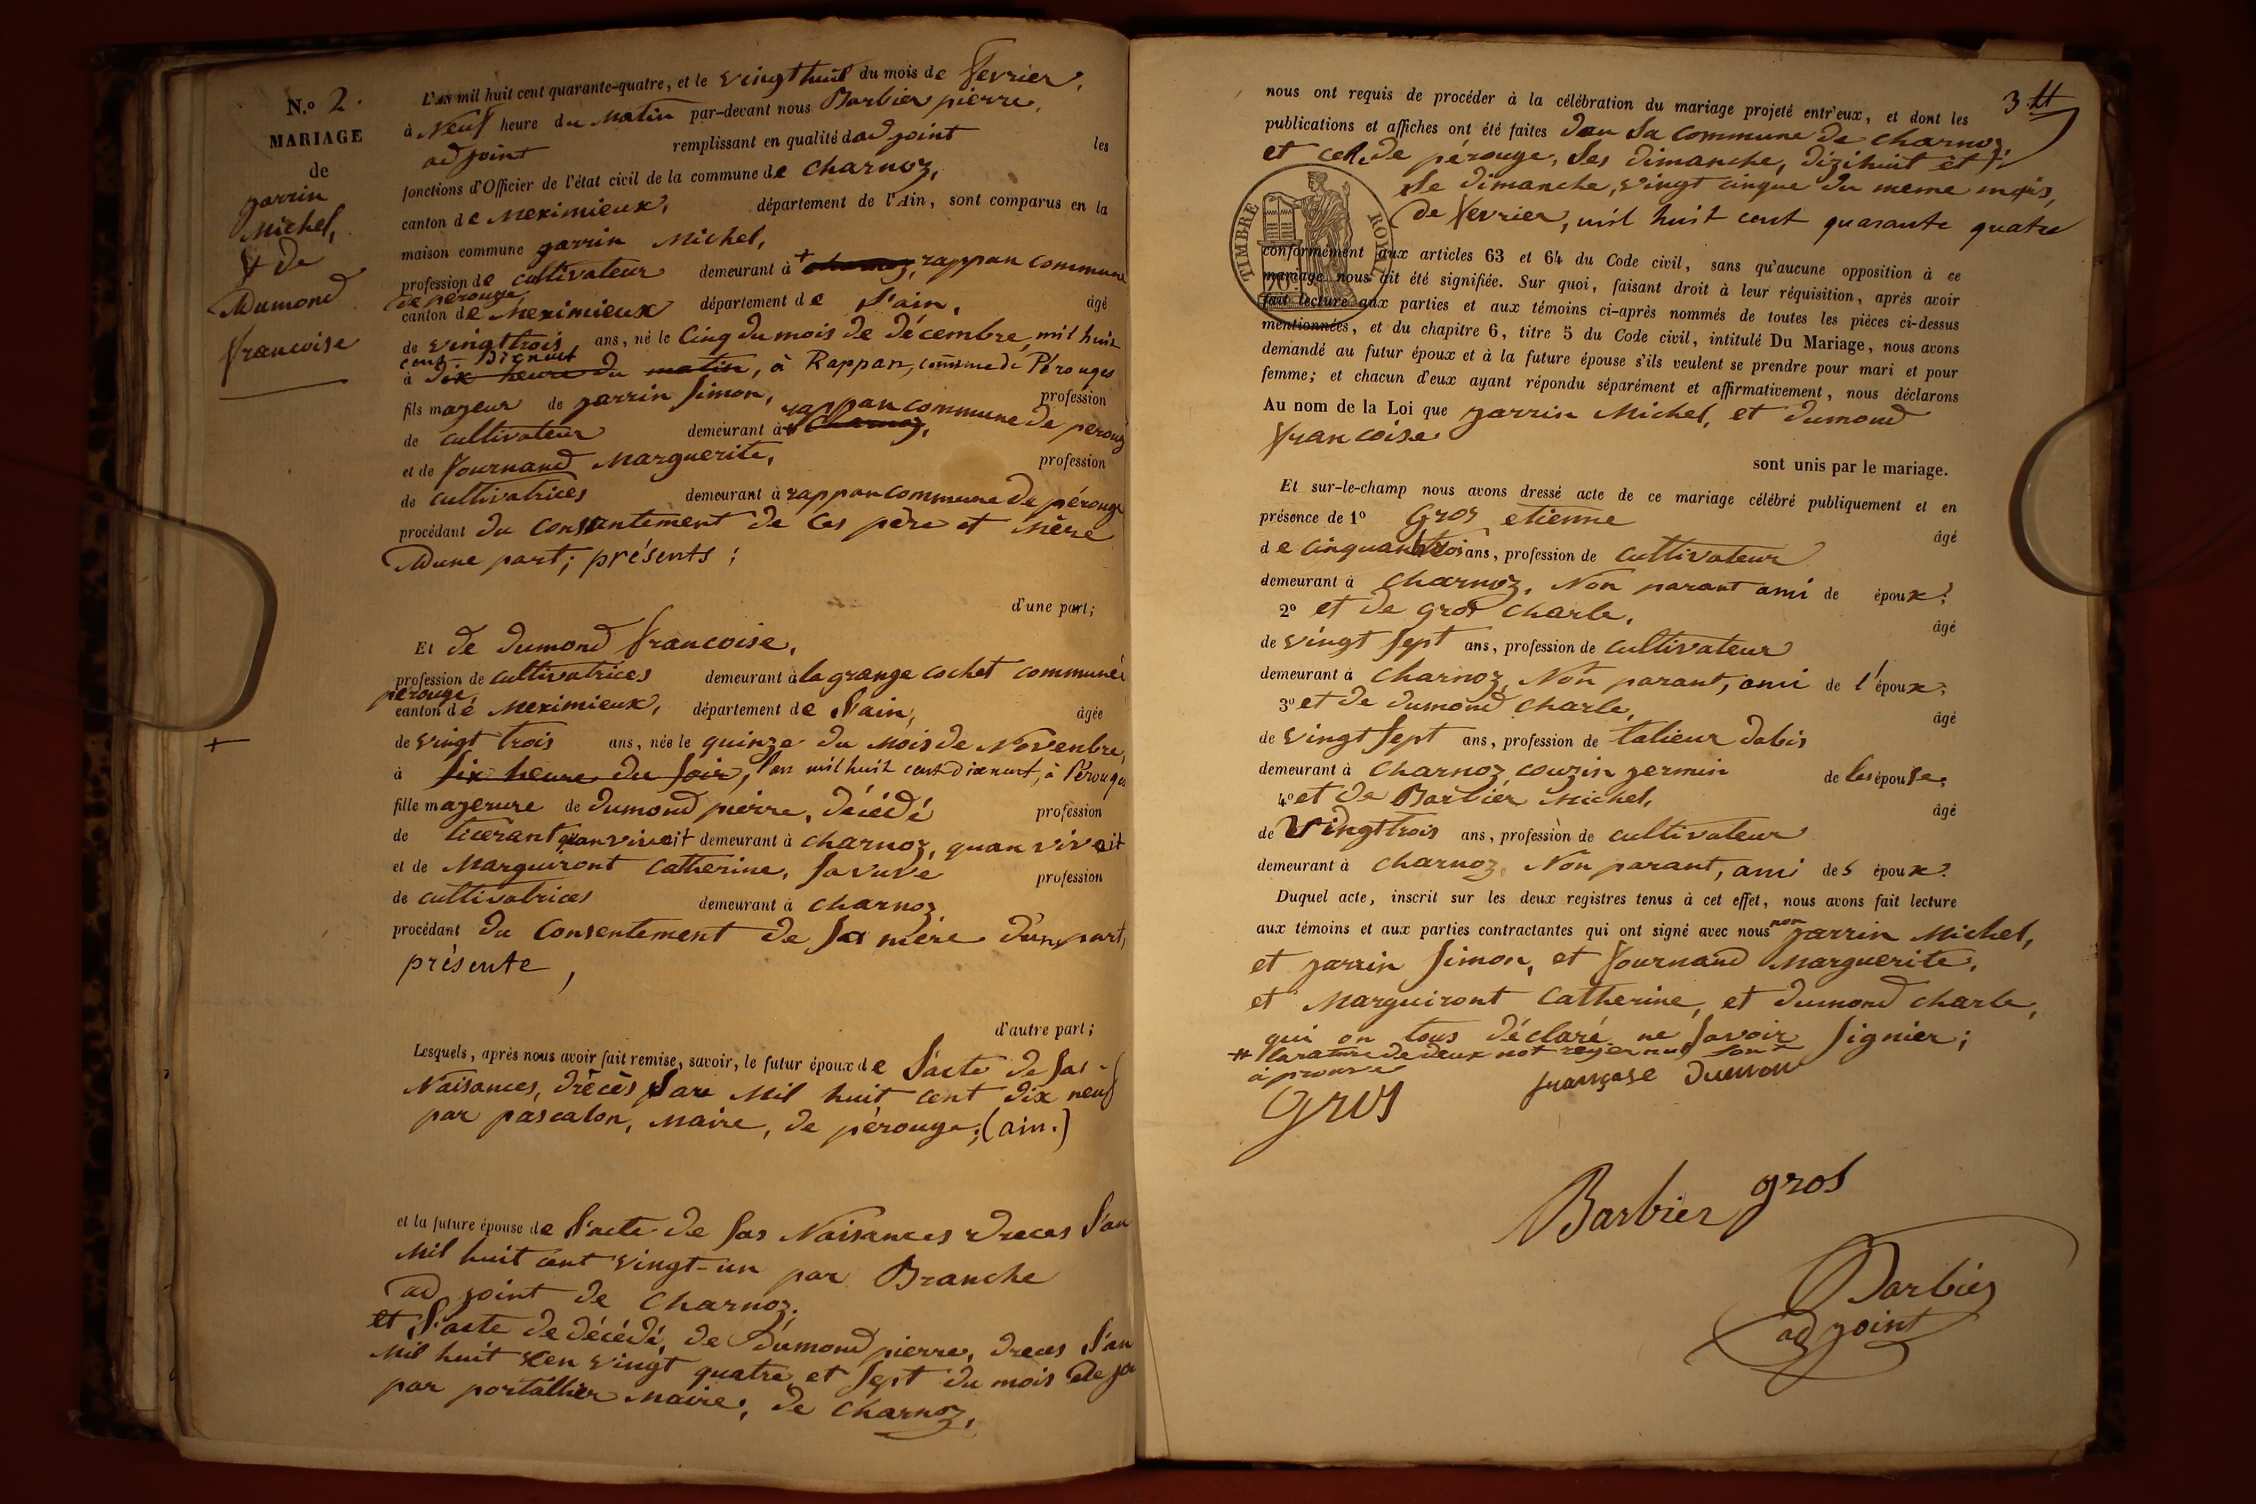 N.o 2.
MARIAGE
de
jarrin
Michel,
& de
Dumond
francoise
L'an mil huit cent quarante-quatre, et le vingt huit du mois de fevrier,
à Neuf heure du Matin par-devant nous Barbier pierre,
adjoint remplissant en qualité d'adjoint les
fonctions d'Officier de l'état civil de la commune de charnoz,
canton de Meximieux, département de l'Ain, sont comparus en la
maison commune jarrin Michel,
profession de cultivateur demeurant à + charnoz, rappan commune
de pérouge
canton de Meximieux département de l'ain, âgé
de vingt trois ans, né le Cinq du mois de décembre mil huit
cent Dixneuf
à dix heure du matin, à Rappan, commune de Pérouges
fils majeur de jarrin simon, profession
rappan commune de pérouge
de cultivateur demeurant à charnoz,
et de fournand Marguerite, profession
de cultivatrices demeurant à rappan commune de pérouge
procédant du consantement de ces père et mère
Dune part; présents;
d'une part;
Et de dumond francoise,
profession de cultivatrices demeurant à la grange cochet commune
pérouge,
canton de Meximieux, département de l'ain, âgée
de vingt trois ans, née le quinze du mois de Novenbre,
à six heure du soir, l'an mil huit cent dixneuf, à Pérouges
fille majerure de dumond pierre, décédé profession
de ticerant quan vivait demeurant à charnoz, quan vivait
et de Marguiront Catherine, sa vuve profession
de cultivatrices demeurant à charnoz
procédant du Consentement de sa mère d'une part,
présente,
d'autre part;
Lesquels, après nous avoir fait remise, savoir, le futur époux de l'acte de sas
Naisances, drècès l'an Mil huit cent dix neuf
par pascalon, Maire, de pérouge; (ain.)
et la future épouse de l'acte de sas Naisances dreces l'an
Mil huit cent vingt-un par Branche
adjoint de charnoz,
et l'acte de décédé, de Dumond pierre, dreces l'an
Mil huit cen vingt quatre et sept du mois de
par portallier Maire, de charnoz,
3
nous ont requis de procéder à la célébration du mariage projeté entr'eux, et dont les
publications et affiches ont été faites dan sa commune de charnoz,
et cel de pérouge, les dimanche, dizihuit et
le dimanche, vingt cinque du meme mois,
de fevrier, mil huit cent quarante quatre
TIMBRE ROYAL
conformément aux articles 63 et 64 du Code civil, sans qu'aucune opposition à ce
mariage nous ait été signifiée. Sur quoi, faisant droit à leur réquisition, après avoir
fait lecture aux parties et aux témoins ci-après nommés de toutes les pièces ci-dessus
mentionnées, et du chapitre 6, titre 5 du Code civil, intitulé Du Mariage, nous avons
demandé au futur époux et à la future épouse s'ils veulent se prendre pour mari et pour
femme; et chacun d'eux ayant répondu séparément et affirmativement, nous déclarons
Au nom de la Loi que jarrin Michel, et dumond
francoise
sont unis par le mariage.
Et sur-le-champ nous avons dressé acte de ce mariage célébré publiquement et en
présence de 1o Gros etienne âgé
de cinquante trois ans, profession de cultivateur
demeurant à charnoz, Non parant ami de époux;
2o et de gros charle, âgé
de vingt sept ans, profession de cultivateur
demeurant à charnoz, Non parant, ami de l'époux;
3o et de dumond charle, âgé
de vingt sept ans, profession de talieur dabis
demeurant à charnoz couzin germin de les épouse;
4o et de Barbier Michel, âgé
de vingt trois ans, profession de cultivateur
demeurant à charnoz, Non parant, ami des époux.
Duquel acte, inscrit sur les deux registres tenus à cet effet, nous avons fait lecture
aux témoins et aux parties contractantes qui ont signé avec nous non jarrin Michel,
et jarrin simon, et fournand Marguerite,
et Marguiront Catherine, et dumond charle,
qui on tous déclaré ne savoir signier;
la rature de deux mot sont
aprouve
françoise Dumon
Gros
Barbier gros
Barbier
adjoint